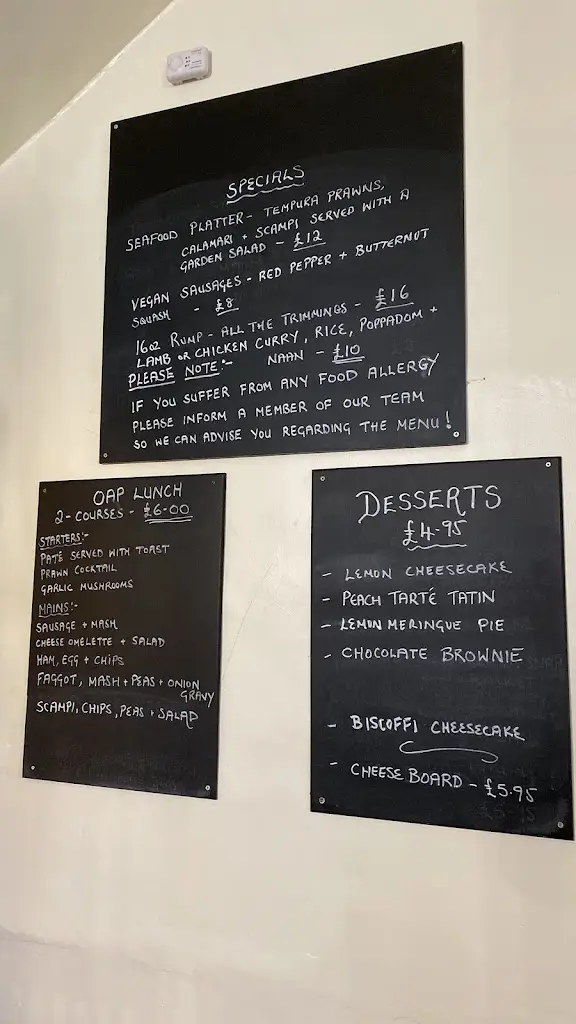 SPECIALS
SEAFOOD PLATTER - TEMPURA PRAWNS,
CALAMARI + SCAMPI SERVED WITH A
GARDEN SALAD - £12
VEGAN SAUSAGES - RED PEPPER + BUTTERNUT
SQUASH - £8
16oz RUMP - ALL THE TRIMMINGS - £16
LAMB OR CHICKEN CURRY, RICE, POPPADOM +
NAAN - £10
PLEASE NOTE:-
IF YOU SUFFER FROM ANY FOOD ALLERGY
PLEASE INFORM A MEMBER OF OUR TEAM
SO WE CAN ADVISE YOU REGARDING THE MENU!
OAP LUNCH
2-COURSES - £6-00
STARTERS:-
PATÉ SERVED WITH TOAST
PRAWN COCKTAIL
GARLIC MUSHROOMS
MAINS:-
SAUSAGE + MASH
CHEESE OMELETTE + SALAD
HAM, EGG + CHIPS
FAGGOT, MASH + PEAS + ONION
GRAVY
SCAMPI, CHIPS, PEAS + SALAD
DESSERTS
£4-95
- LEMON CHEESECAKE
- PEACH TARTÉ TATIN
- LEMON MERINGUE PIE
- CHOCOLATE BROWNIE
- BISCOFFI CHEESECAKE
- CHEESE BOARD - £5.95